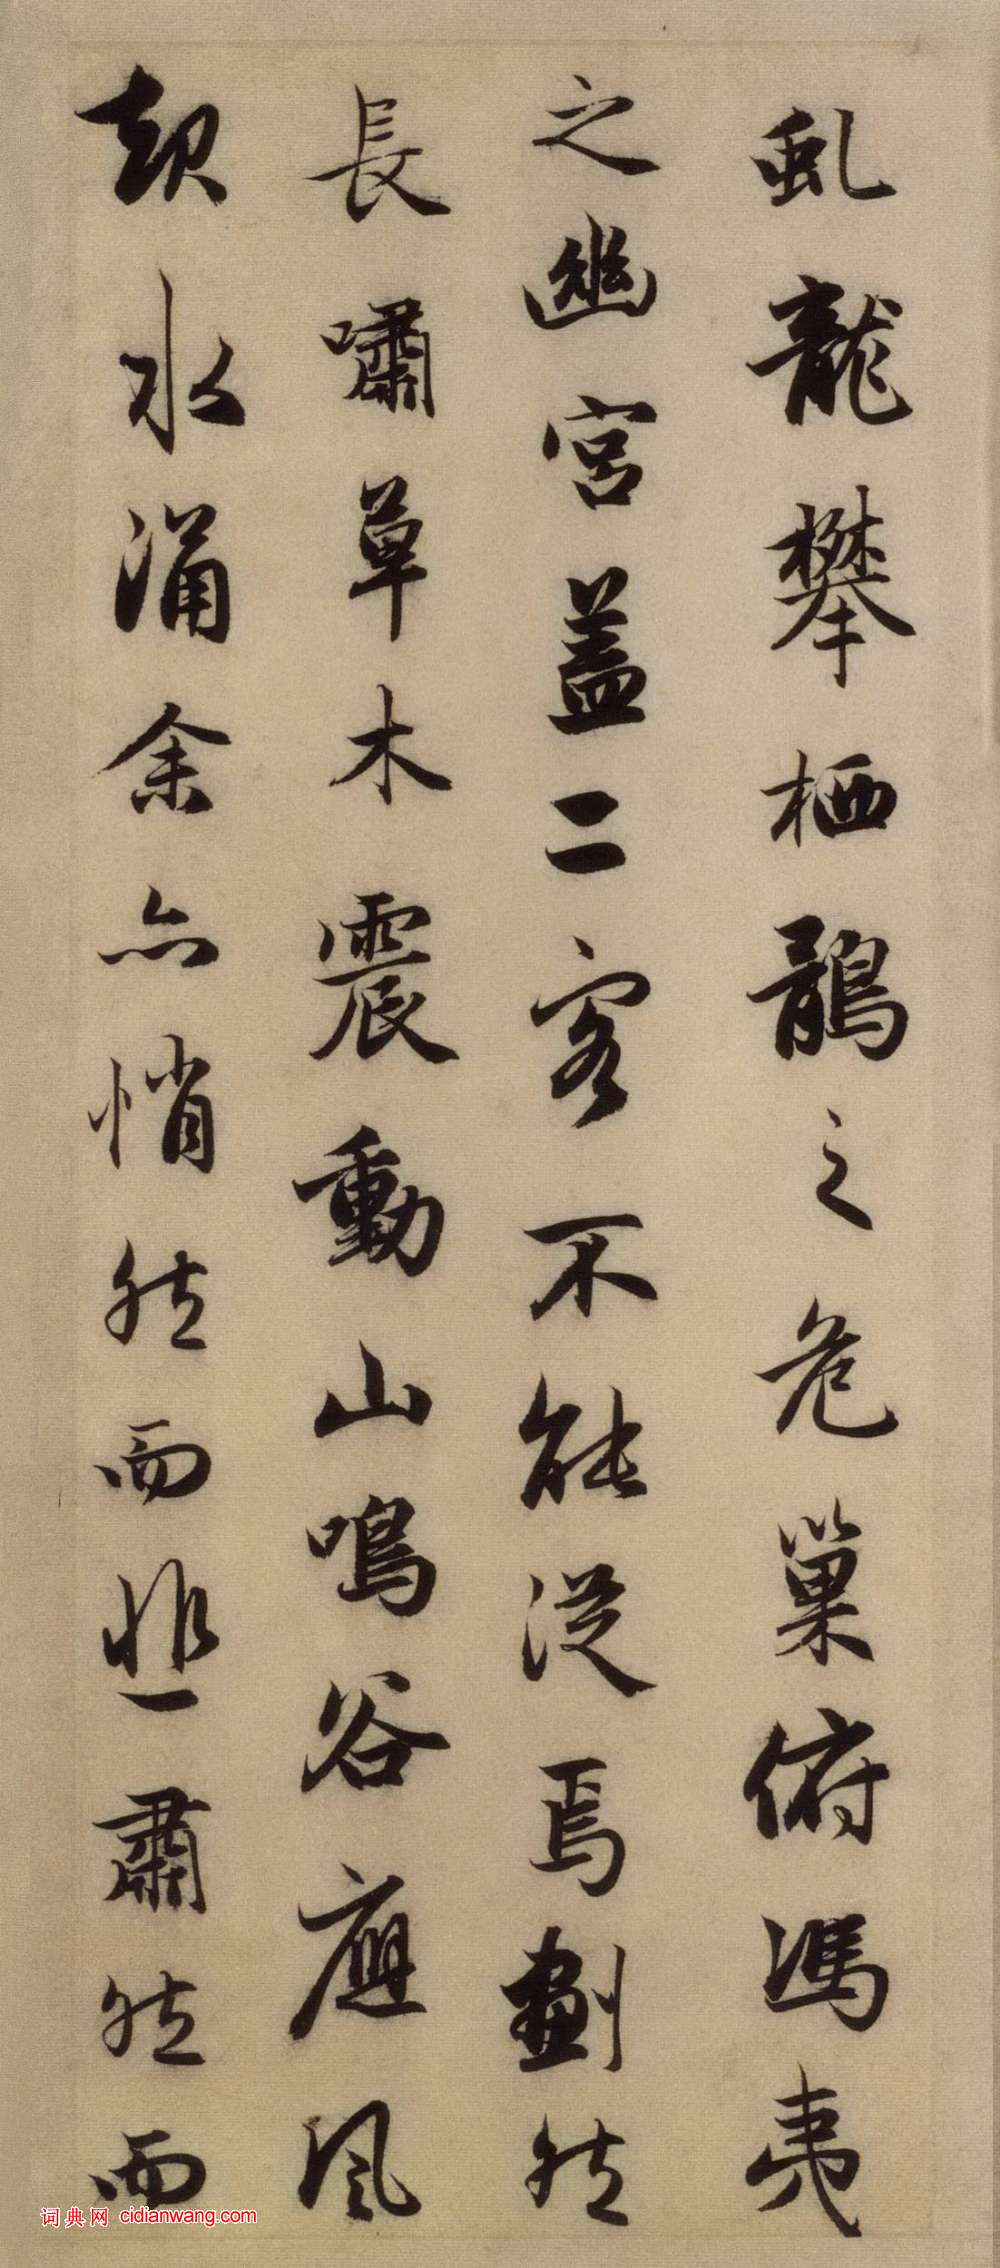 虬龍攀栖鶻之危巢俯馮夷
之幽宮蓋二客不能從焉劃然
長嘯草木震動山鳴谷應風
起水涌余亦悄然而悲肅然而
词典网 cidianwang.com